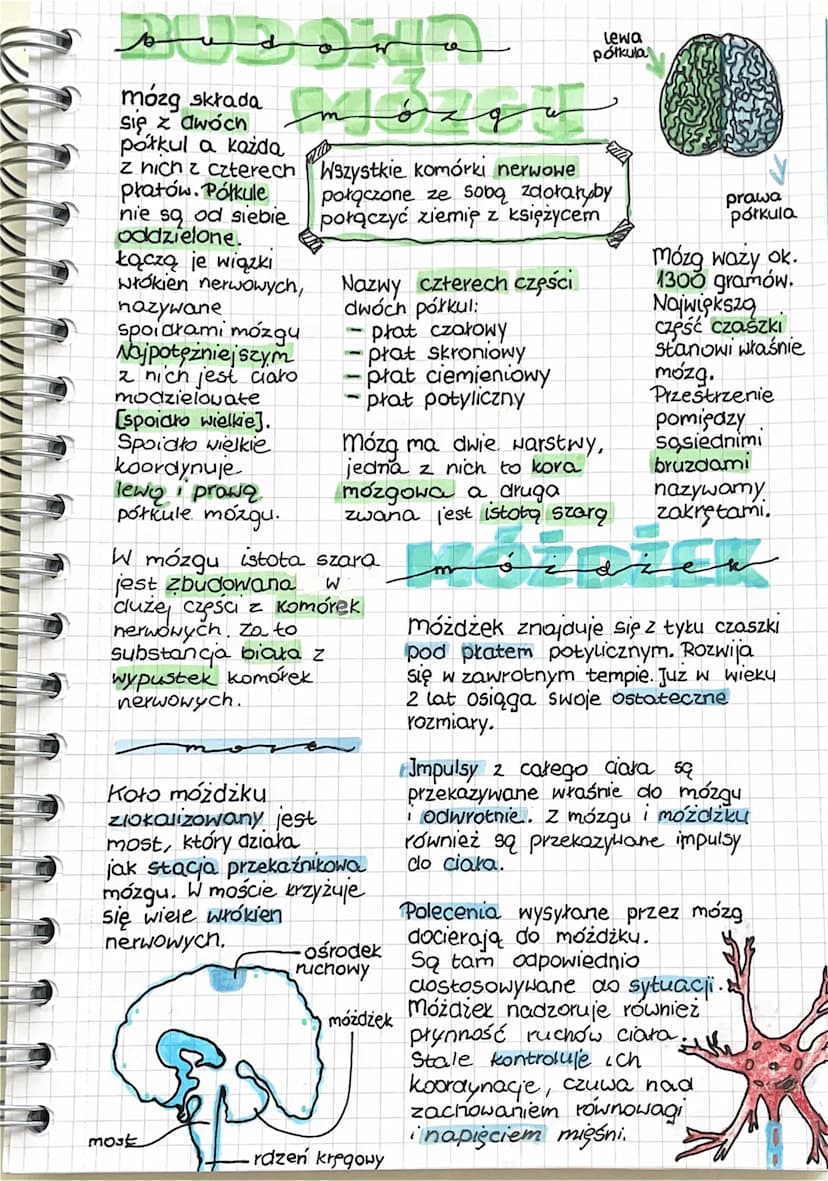 BUDOWA
budowa
MÓZGU
mózgu
lewa
półkula
prawa
półkula
mózg składa
się z dwóch
półkul a każda
z nich z czterech
płatów. Półkule
nie są od siebie
oddzielone.
Łączą je wiązki
włókien nerwowych,
nazywane
spoidłami mózgu
Najpotężniejszym
z nich jest ciało
modzielowate
[spoidło wielkie].
Spoidło wielkie
koordynuje
lewą i prawą
półkule mózgu.
Wszystkie komórki nerwowe
połączone ze sobą zdołałyby
połączyć ziemię z księżycem
Nazwy czterech części
dwóch półkul:
- płat czołowy
- płat skroniowy
- płat ciemieniowy
- płat potyliczny
Mózg ma dwie warstwy,
jedna z nich to kora
mózgowa a druga
zwana jest istotą szarą
Mózg waży ok.
1300 gramów.
Największą
część czaszki
stanowi właśnie
mózg.
Przestrzenie
pomiędzy
sąsiednimi
bruzdami
nazywamy
zakrętami.
W mózgu istota szara
jest zbudowana w
dużej części z komórek
nerwowych. Za to
substancja biała z
wypustek komórek
nerwowych.
MÓŻDŻEK
móżdżek
Móżdżek znajduje się z tyłu czaszki
pod płatem potylicznym. Rozwija
się w zawrotnym tempie. Już w wieku
2 lat osiąga swoje ostateczne
rozmiary.
Impulsy z całego ciała są
przekazywane właśnie do mózgu
i odwrotnie. Z mózgu i móżdżku
również są przekazywane impulsy
do ciała.
Polecenia wysyłane przez mózg
docierają do móżdżku.
Są tam odpowiednio
dostosowywane do sytuacji.
Móżdżek nadzoruje również
płynność ruchów ciała.
Stale kontroluje ich
koordynacje, czuwa nad
zachowaniem równowagi
i napięciem mięśni.
Koło móżdżku
zlokalizowany jest
most, który działa
jak stacja przekaźnikowa
mózgu. W moście krzyżuje
się wiele włókien
nerwowych.
ośrodek
ruchowy
móżdżek
most
rdzeń kręgowy